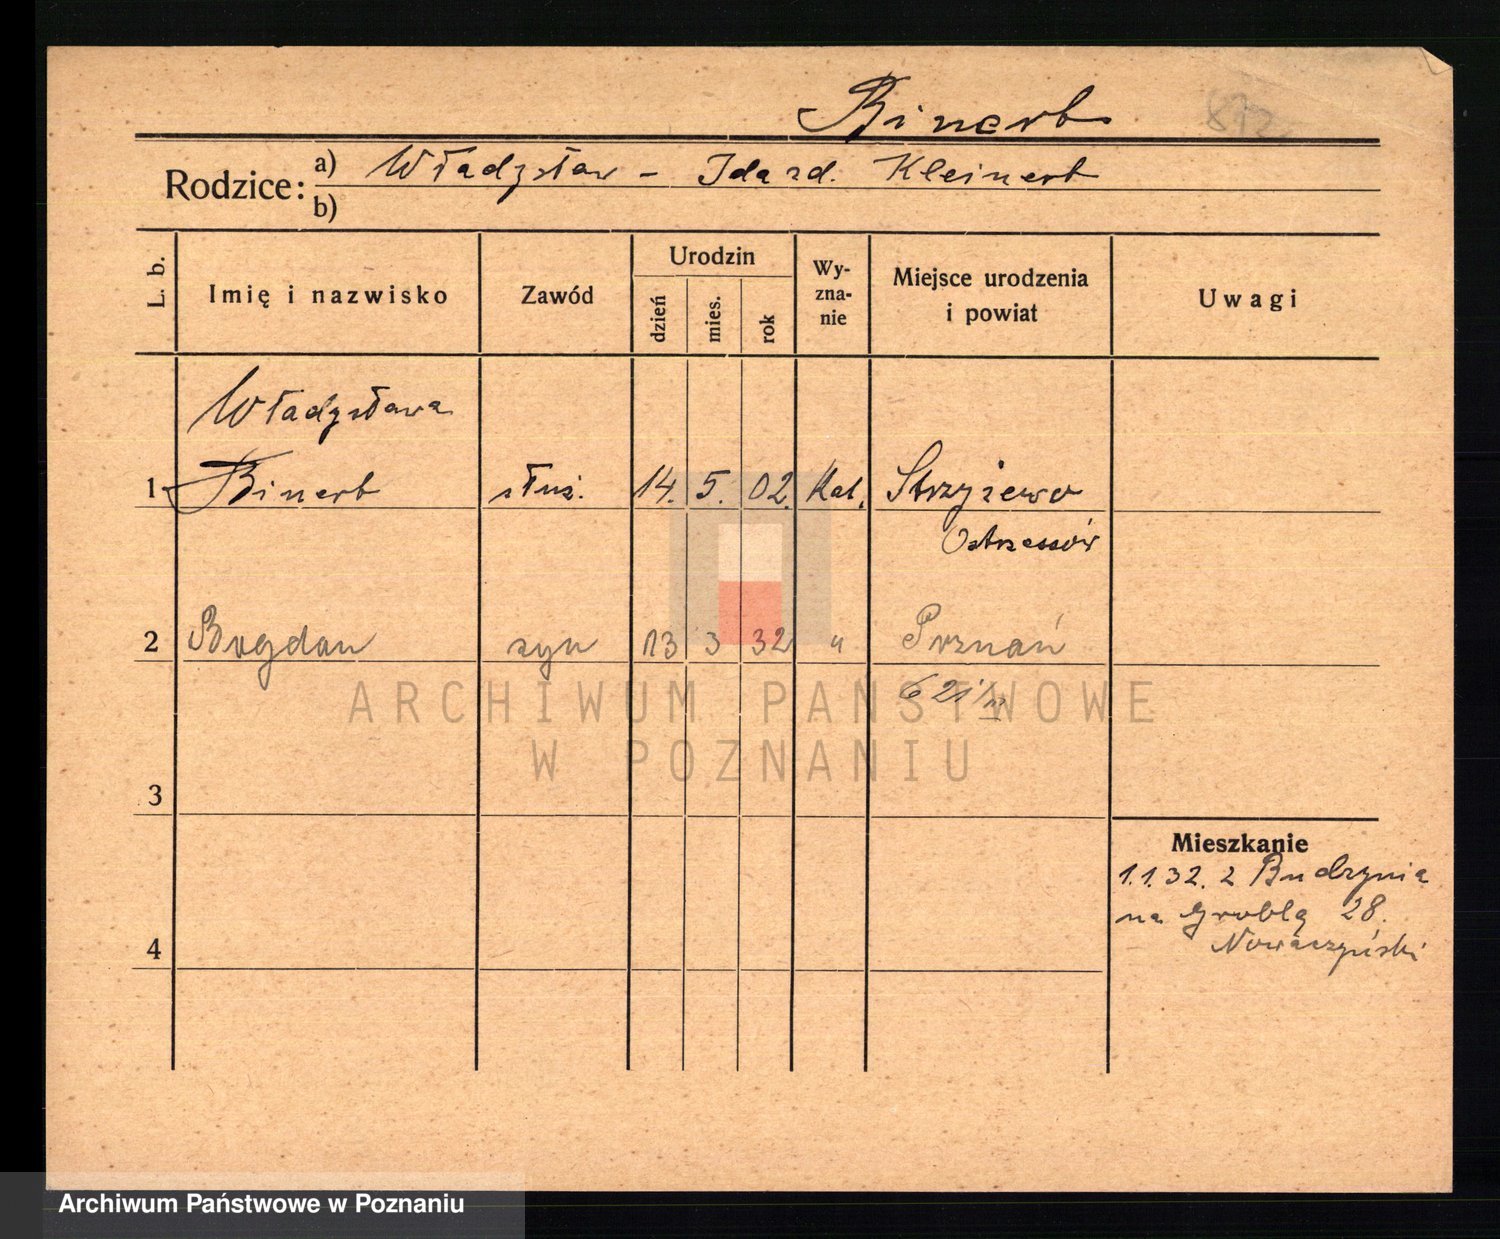 Binert
872
Rodzice: a) Władysław - Ida zd. Kleinert
b)
L. b.
Imię i nazwisko
Zawód
Urodzin
dzień
mies.
rok
Wy-
zna-
nie
Miejsce urodzenia
i powiat
Uwagi
Władysława
1 Binert służ. 14. 5. 02. Kat. Strzyżewo
Ostrzeszów
2 Bogdan syn 13 3 32 " Poznań
3
4
Mieszkanie
1.1.32. z Budzynia
na Groblą 28.
Nowaczyński
ARCHIWUM PAŃSTWOWE
W POZNANIU
Archiwum Państwowe w Poznaniu